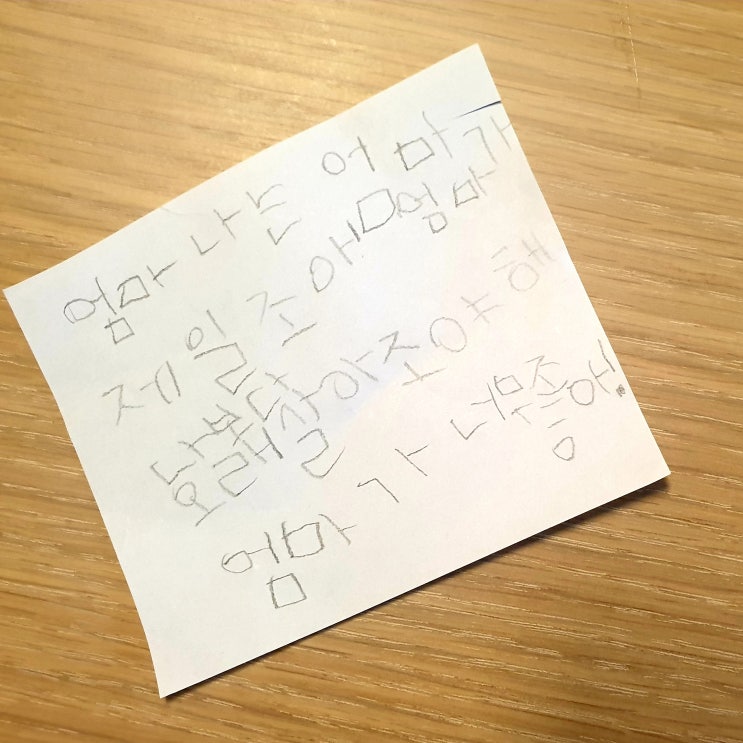 엄마 나는 어마가
제일 조아 엄마
나보다
오래살아조야 해
엄마가 너무좋아!